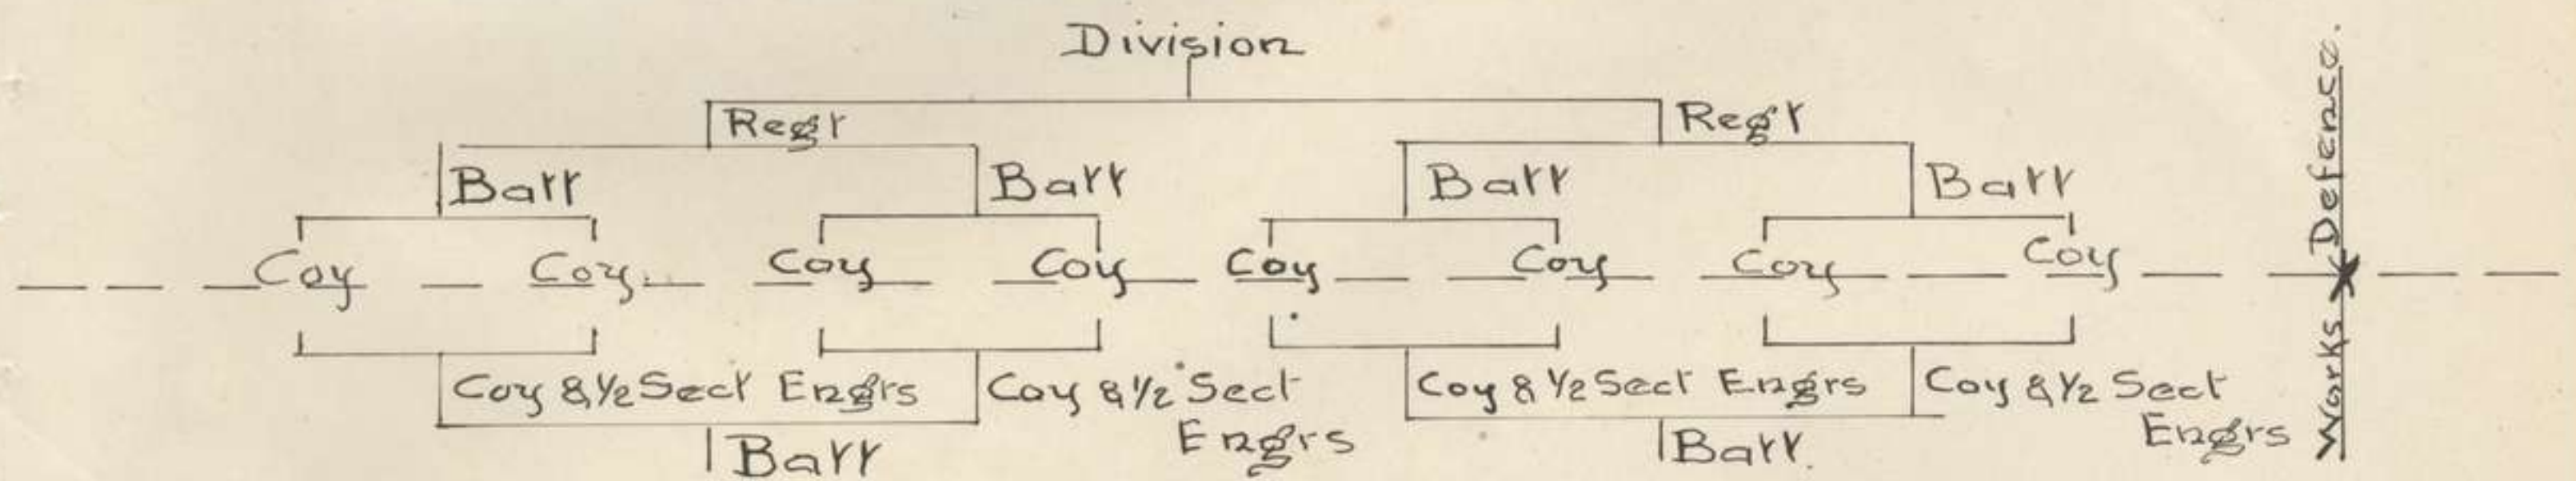 Division
Regt Regt
Batt Batt Batt Batt
Coy Coy Coy Coy Coy Coy Coy Coy
Coy & 1/2 Sect Engrs Coy & 1/2 Sect Engrs Coy & 1/2 Sect Engrs Coy & 1/2 Sect Engrs
Batt Batt.
Works Defence.